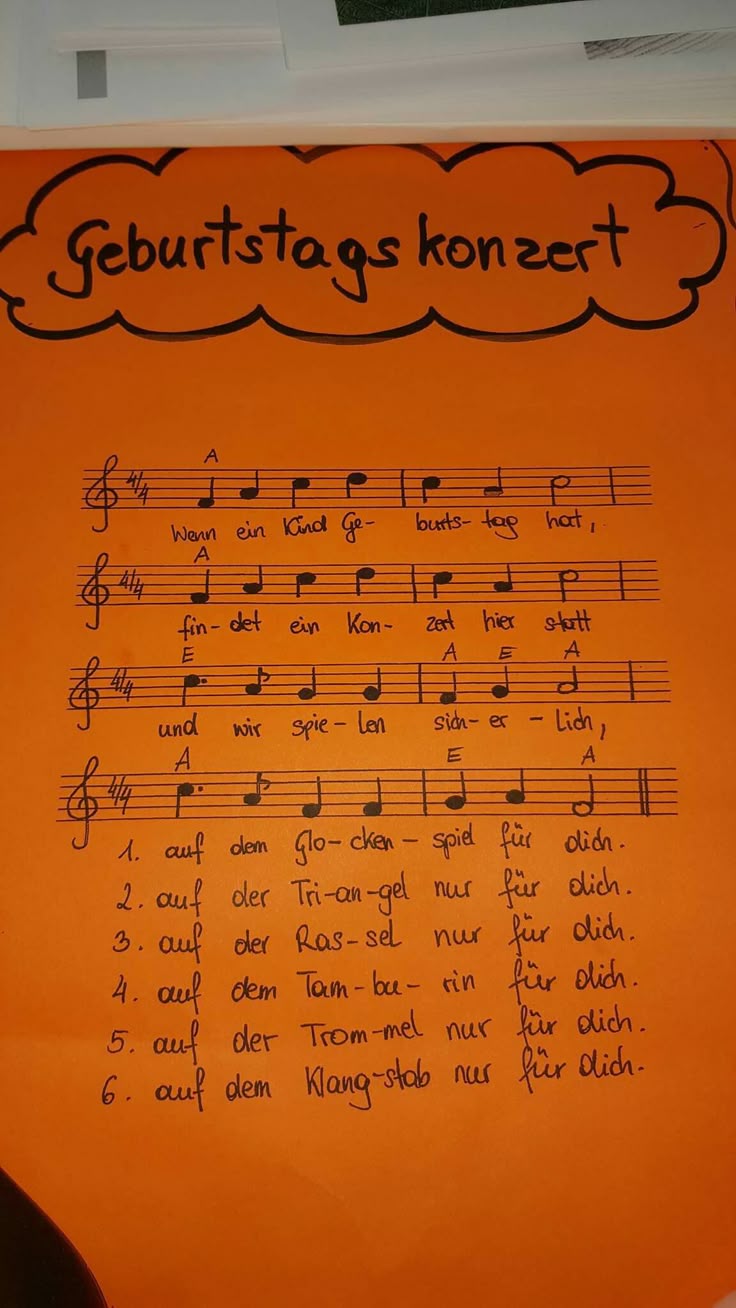 Geburtstagskonzert
A
4/4
Wenn ein Kind Ge- burts- tag hat,
A
4/4
fin- det ein Kon- zert hier statt
E A E A
4/4
und wir spie- len sich- er - lich,
A E A
4/4
1. auf dem Glo- cken- spiel für dich.
2. auf der Tri-an-gel nur für dich.
3. auf der Ras-sel nur für dich.
4. auf dem Tam-bu- rin für dich.
5. auf der Trom-mel nur für dich.
6. auf dem Klang-stab nur für dich.